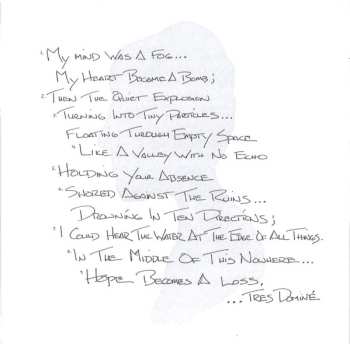 "My mind Was A Fog...
My Heart Became A Bomb;
"Then The Quiet Explosion
"Turning Into Tiny Particles...
Floating Through Empty Space
"Like A Valley With No Echo
"Holding Your Absence
"Shored Against The Ruins...
Drowning In Ten Directions;
"I Could Hear The Water At The Edge Of All Things.
"In The Middle Of This Nowhere...
"Hope Becomes A Loss,
...Tres Dominé